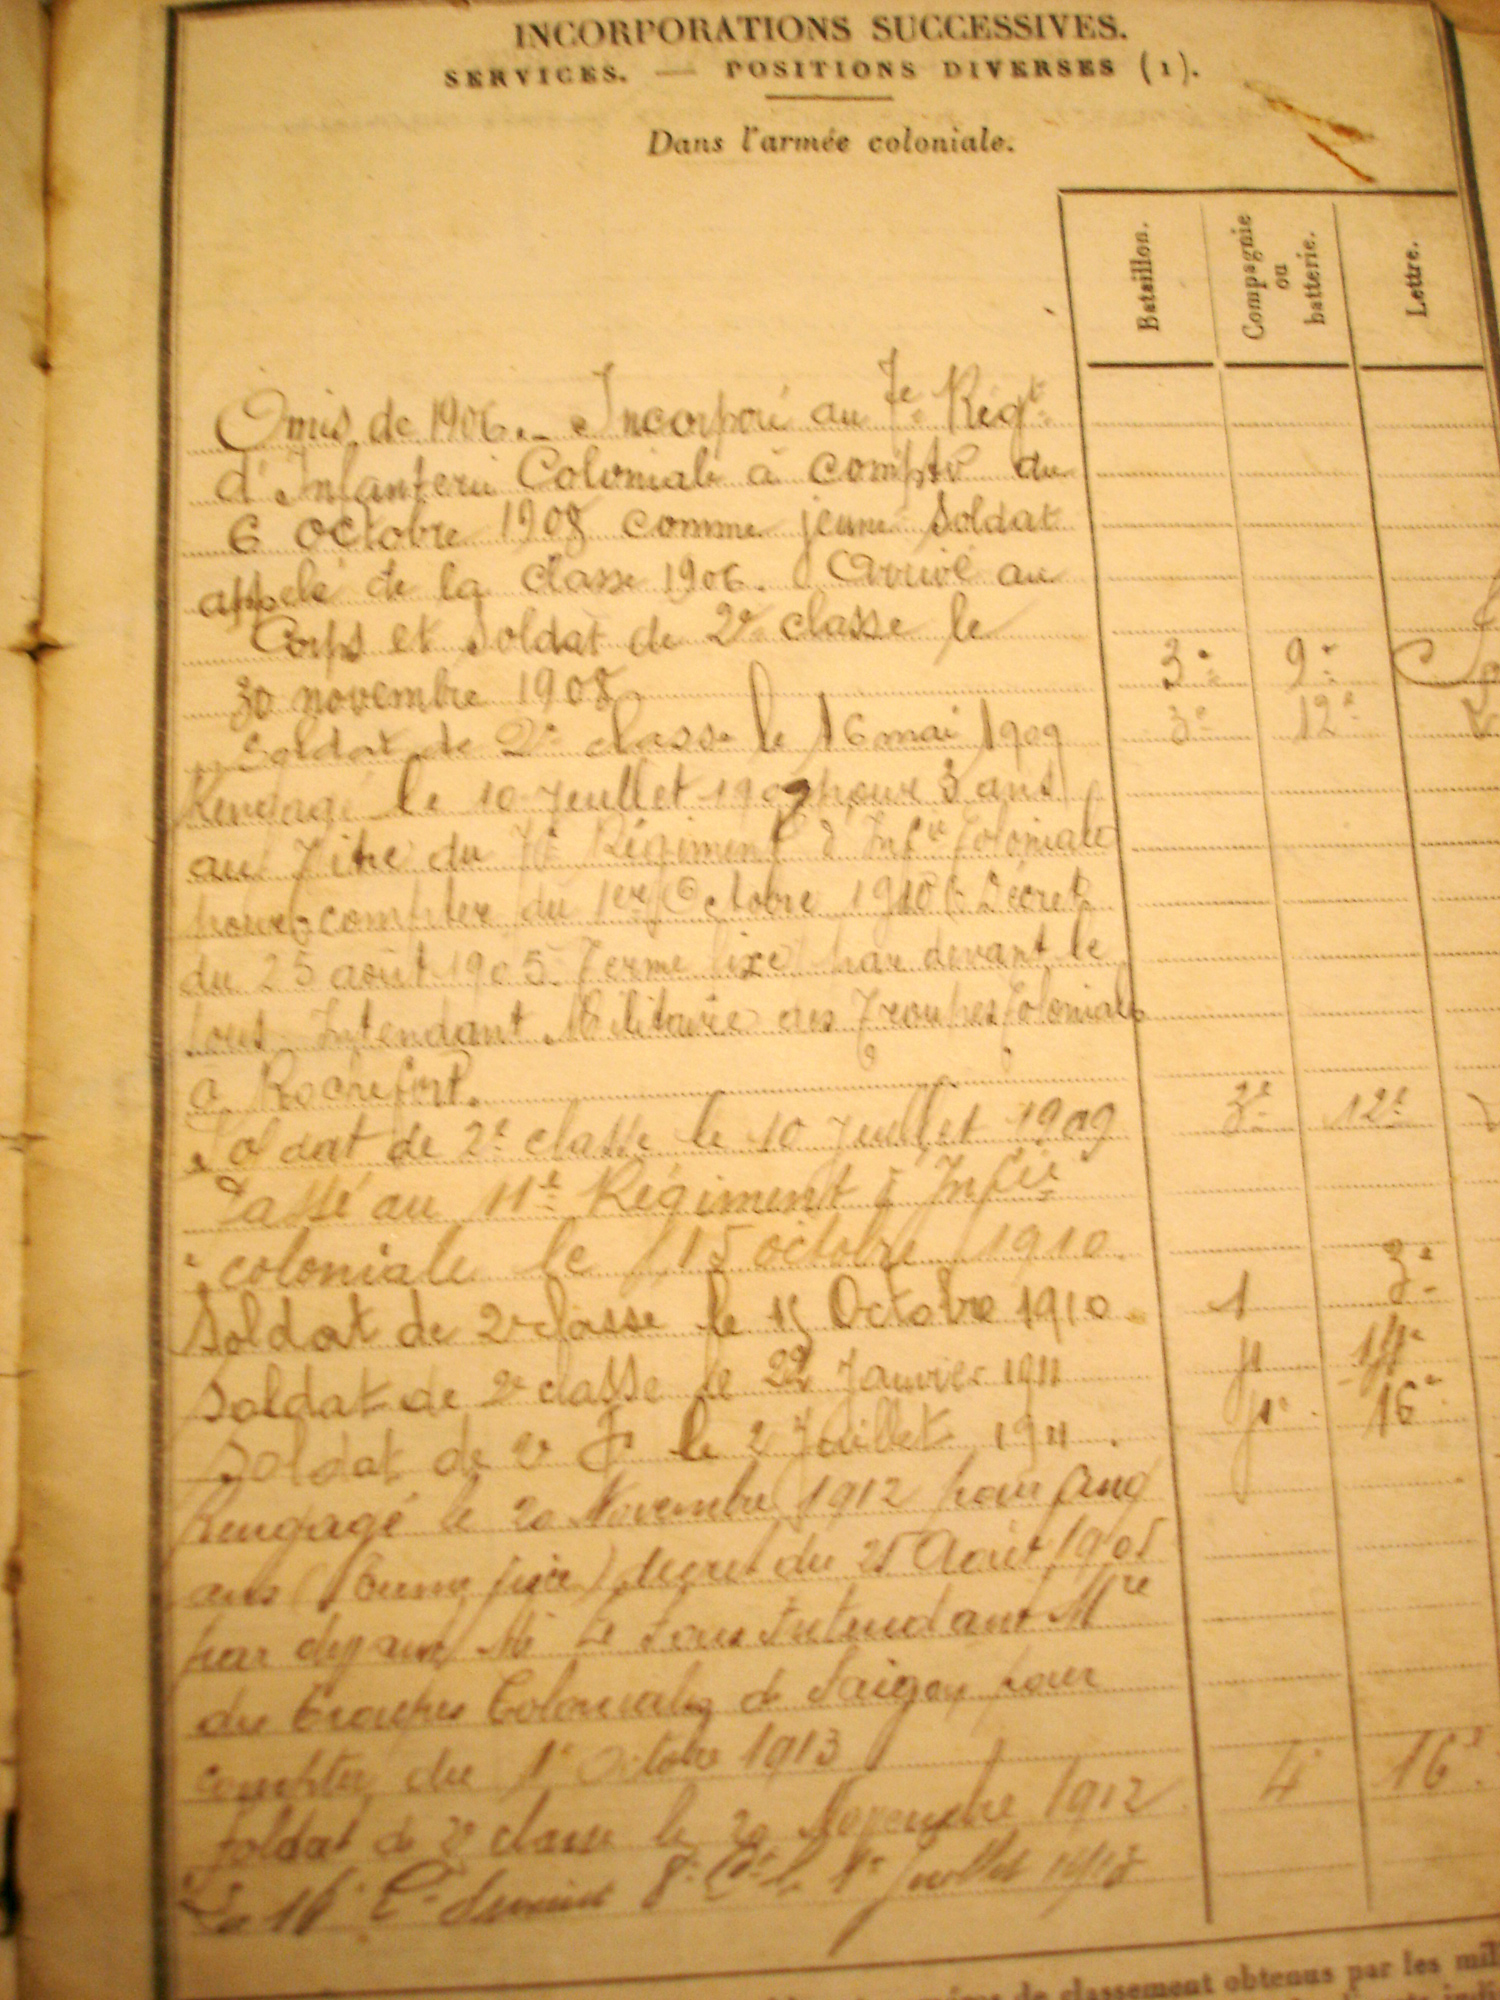 INCORPORATIONS SUCCESSIVES.
SERVICES. — POSITIONS DIVERSES (1).
Dans l'armée coloniale.
Bataillon.
Compagnie
ou
batterie.
Lettre.
Omis de 1906. - Incorporé au 7e Régt
d'Infanterie Coloniale à compter du
6 octobre 1908 comme jeune soldat
appelé de la classe 1906. Arrivé au
Corps et soldat de 2e classe le
30 novembre 1908. 3e 9e
Soldat de 2e classe le 16 mai 1909 3e 12e
Rengagé le 10 Juillet 1909 pour 3 ans
au Titre du 7e Régiment d'Infie Coloniale
pour compter du 1er Octobre 1910 Décret
du 25 août 1905. Terme fixe par devant le
sous Intendant Militaire des Troupes Coloniales
à Rochefort.
Soldat de 2e classe le 10 Juillet 1909 3e 12e
Passé au 11e Régiment d'Infie
coloniale le 15 octobre 1910.
Soldat de 2e classe le 15 Octobre 1910. 1 3e
Soldat de 2e classe le 22 Janvier 1911 14e
Soldat de 2e le 2 Juillet 1911. 16e
Rengagé le 20 Novembre 1912 pour cinq
ans (Terme fixe) decret du 25 Août 1905
par devant Mr Le Sous Intendant Mre
des Troupes Coloniales de Saigon pour
compter du 1er Octobre 1913
Soldat de 2e classe le 20 Novembre 1912 4e 16e
La 16e Cie devient 8e Cie le 1er Juillet
de classement obtenus par les